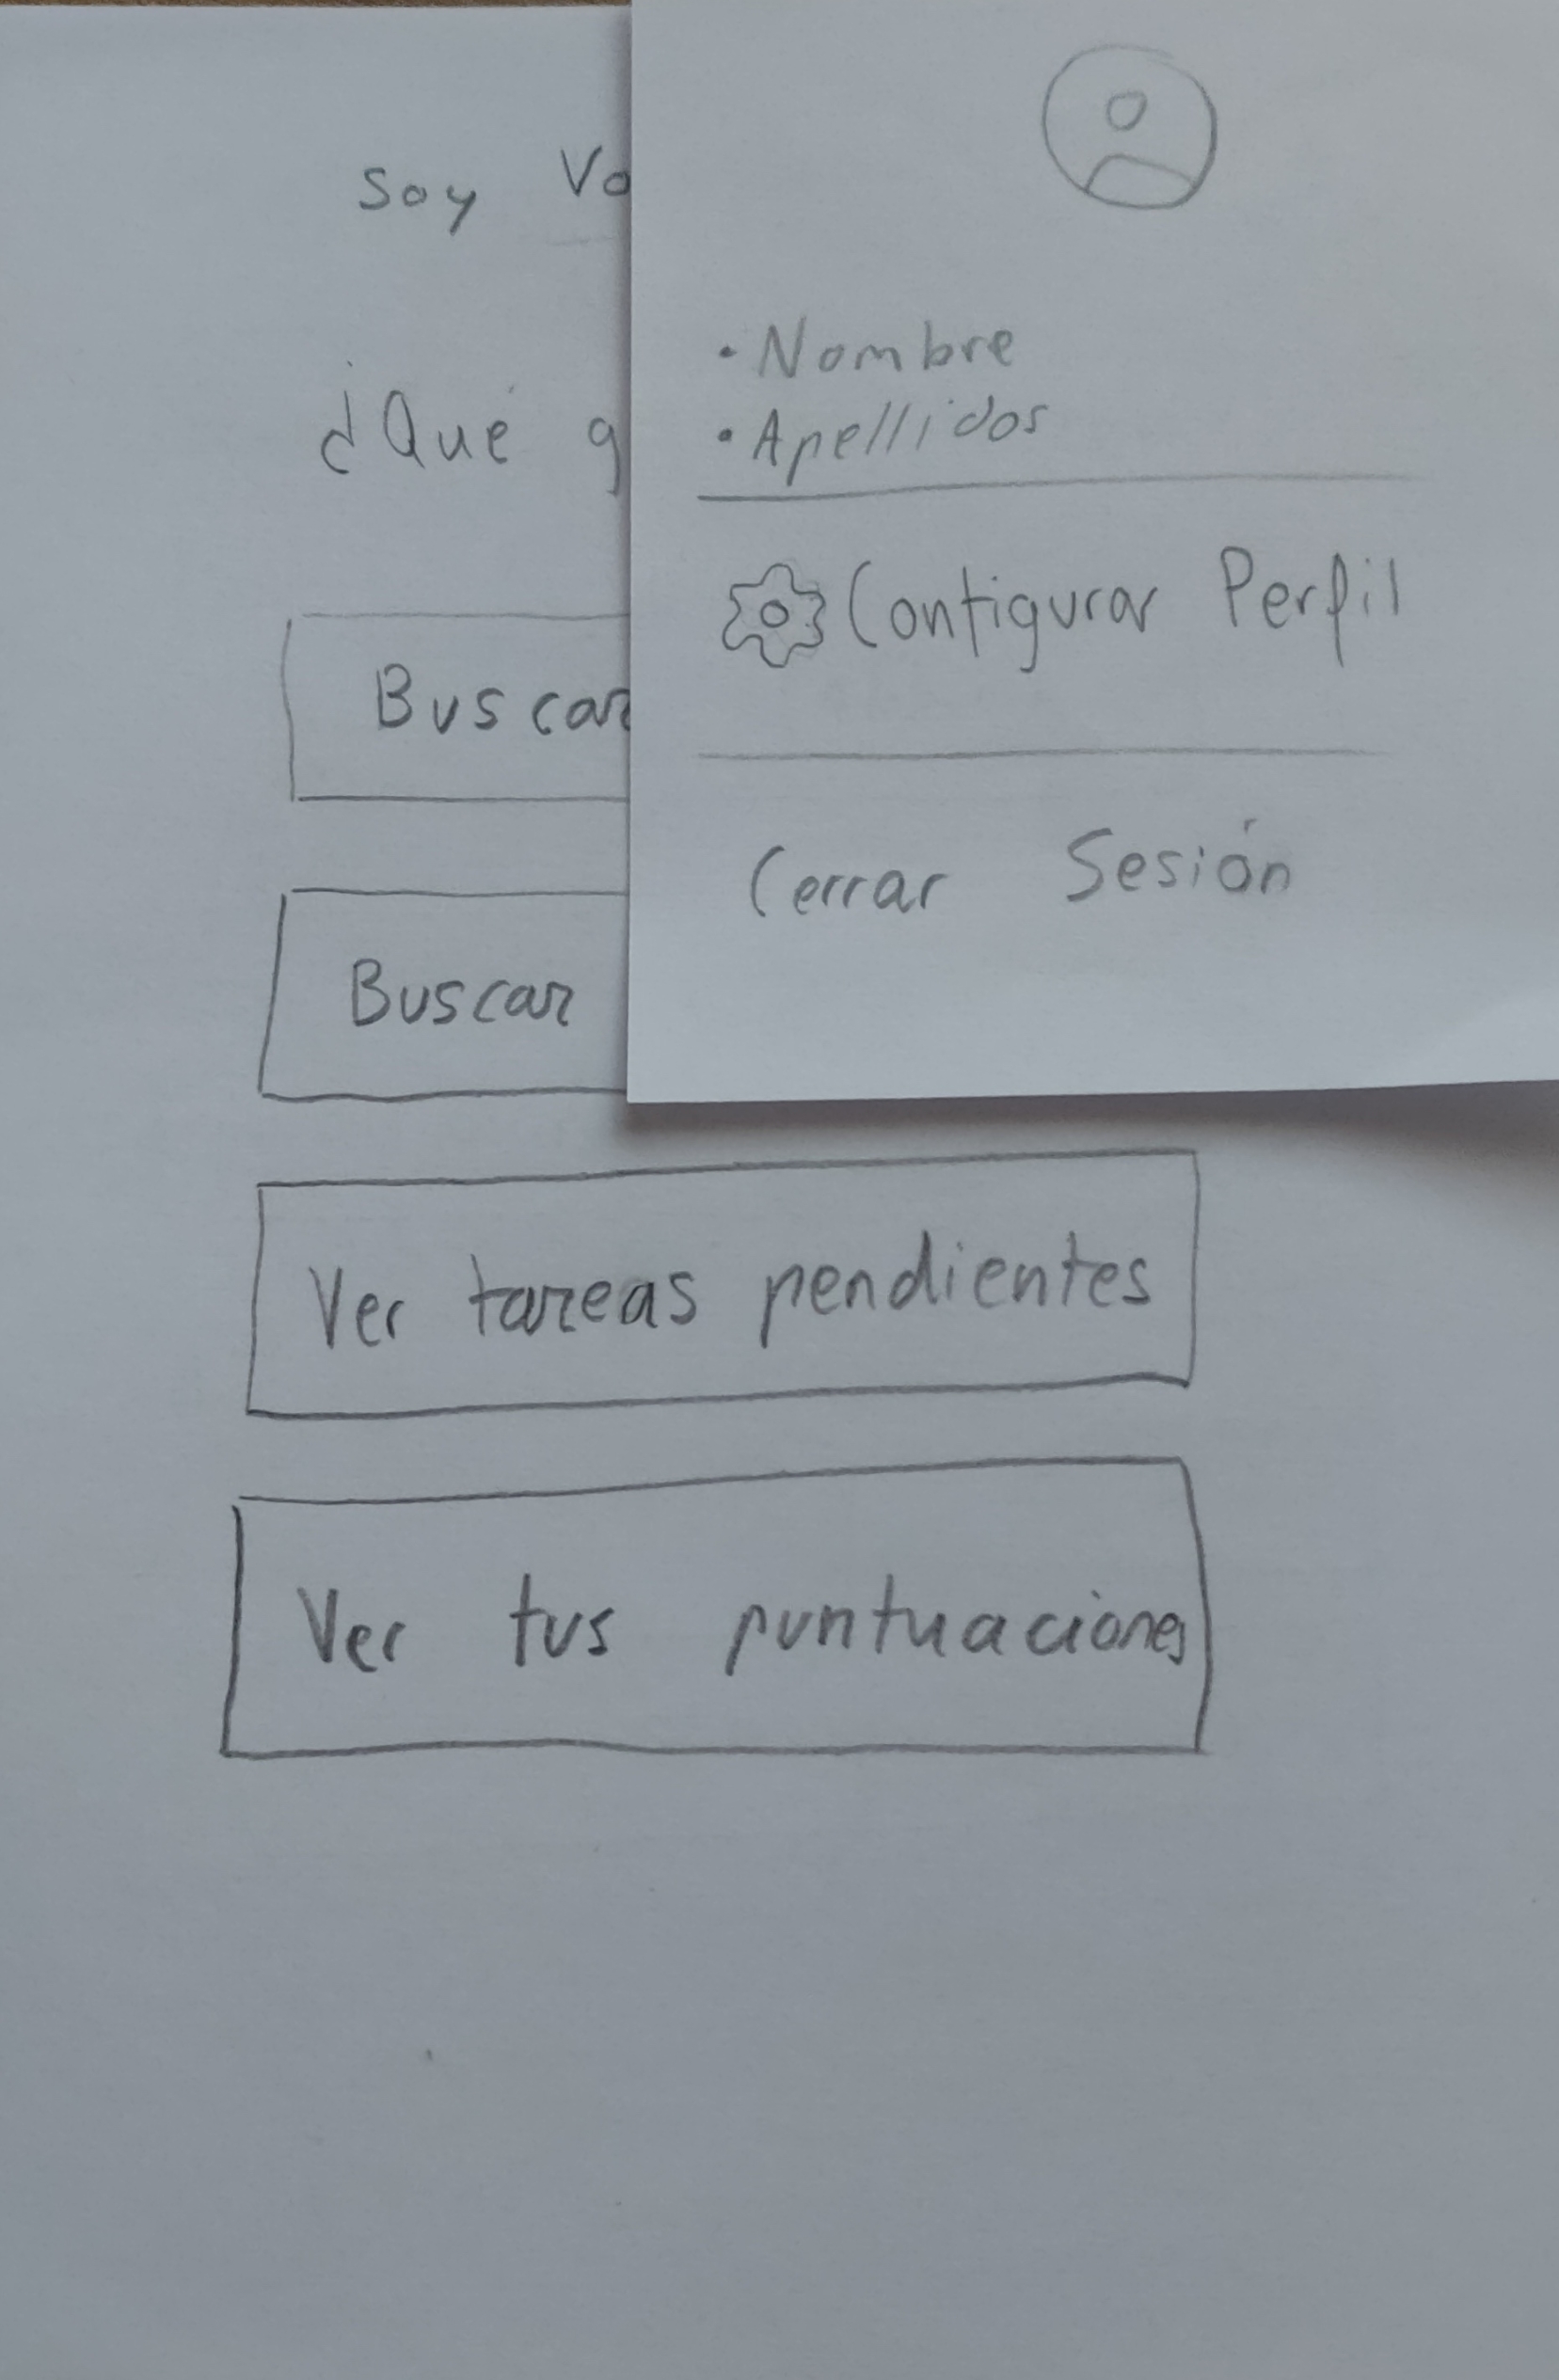 Soy
¿Qué
Buscar
Buscar
Ver tareas pendientes
Ver tus puntuaciones
• Nombre
• Apellidos
Configurar Perfil
Cerrar Sesión